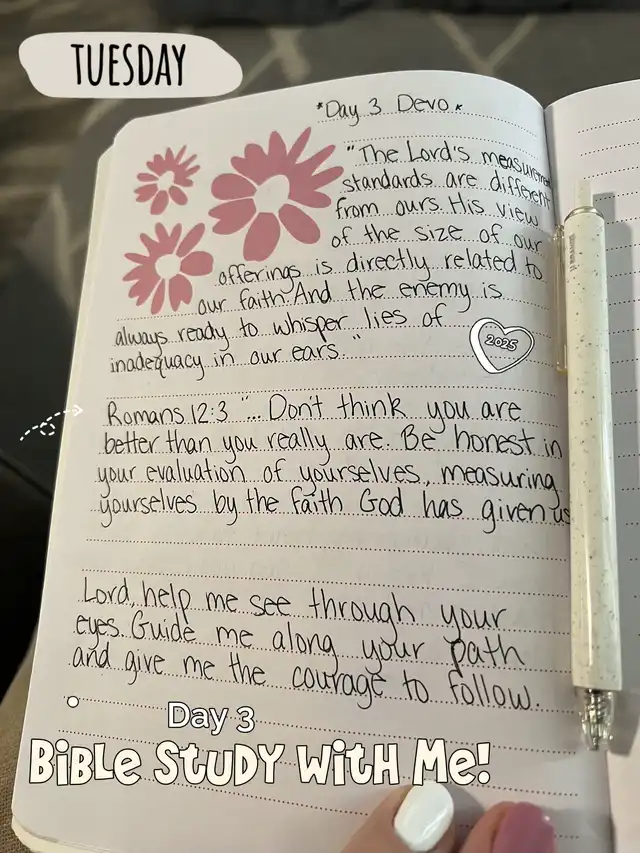 TUESDAY
*Day 3 Devo*
"The Lord's measurement
standards are different
from ours. His view
of the size of our
offerings is directly related to
our faith. And the enemy is
always ready to whisper lies of
inadequacy in our ears."
2025
Romans 12:3 "... Don't think you are
better than you really are. Be honest in
your evaluation of yourselves, measuring
yourselves by the faith God has given us
Lord, help me see through your
eyes. Guide me along your path
and give me the courage to follow.
Day 3
BiBLe STUDY WiTH Me!